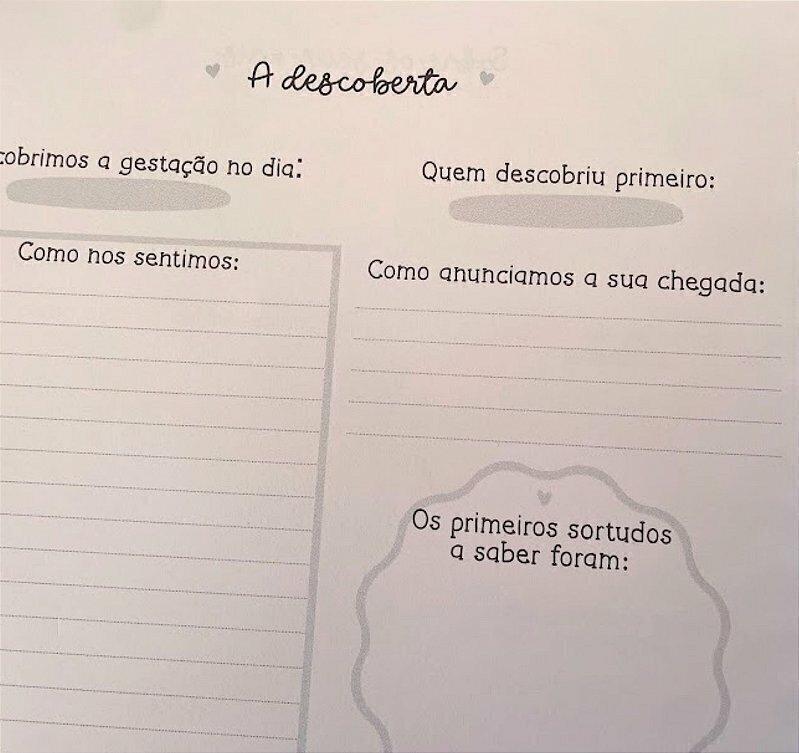 A descoberta
cobrimos a gestação no dia:
Quem descobriu primeiro:
Como nos sentimos:
Como anunciamos a sua chegada:
Os primeiros sortudos
a saber foram: